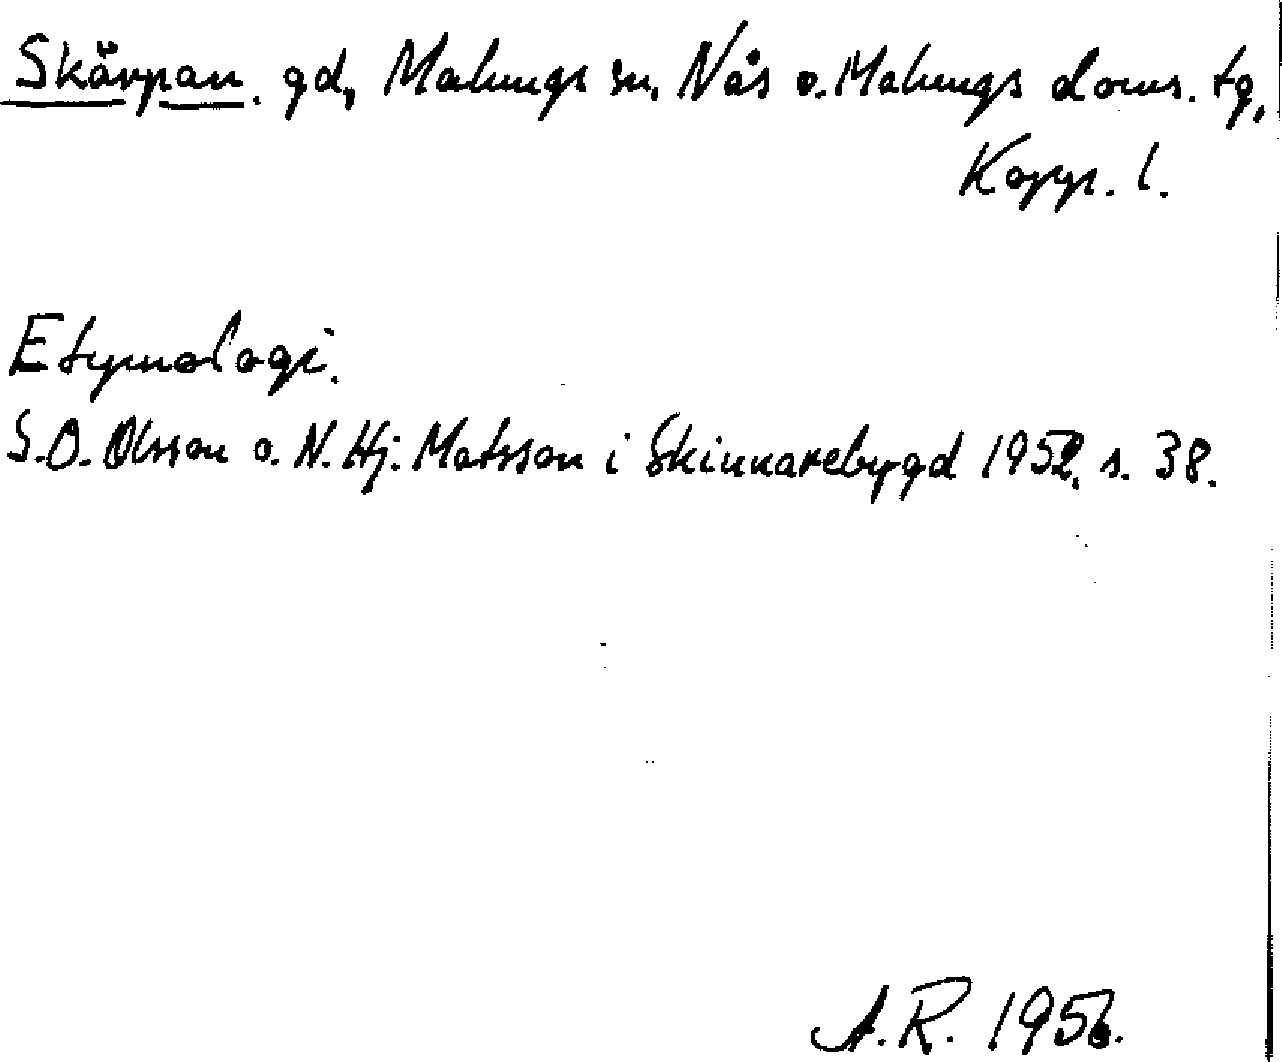 Skärpan. gd, Malungs sn. Nås o. Malungs doms. tg,
Kopp. l.
Etymologi.
S.O. Olsson o. N. Hj. Matsson i Skinnarebygd 1952, s. 38.
A.R. 1956.